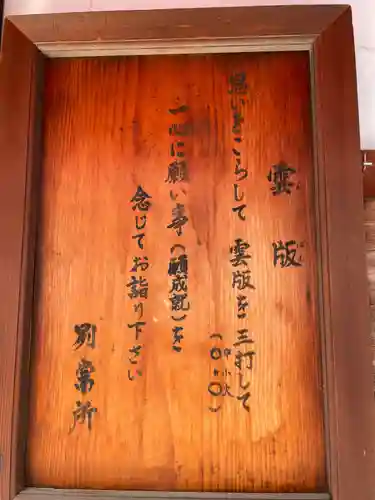 雲版
思いをこらして 雲版を三打して
(中小大)
一心に願い事(願成就)を
念じてお詣り下さい
別當所